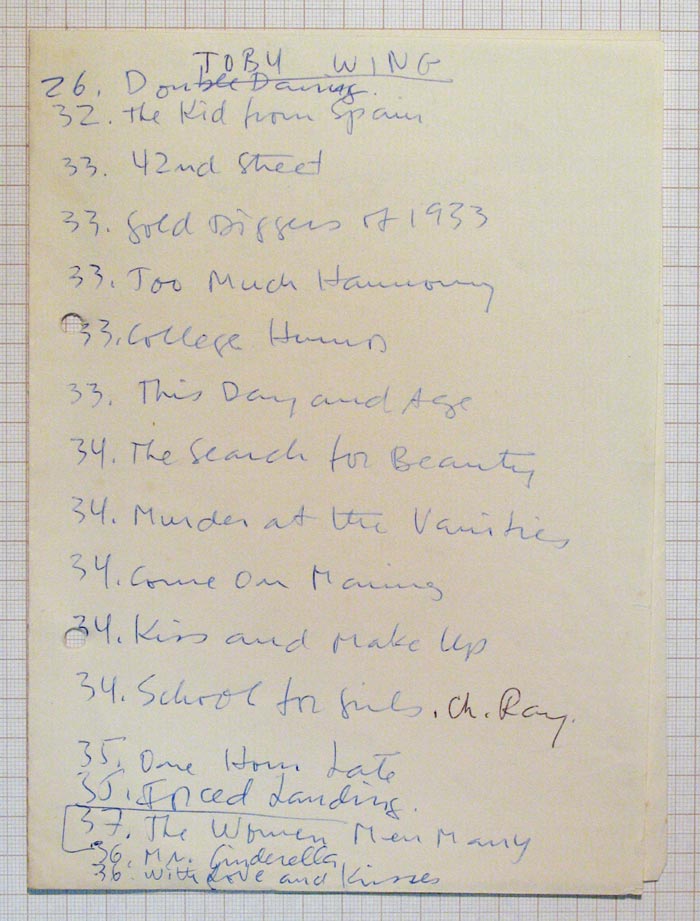 TOBY WING
26. Double Daring.
32. The Kid from Spain
33. 42nd Street
33. Gold Diggers of 1933
33. Too Much Harmony
33. College Humor
33. This Day and Age
34. The Search for Beauty
34. Murder at the Vanities
34. Come On Marines
34. Kiss and Make Up
34. School for Girls. Ch. Ray.
35. One Hour Late
35. Forced Landing.
37. The Women Men Marry
36. Mr. Cinderella
36. With Love and Kisses